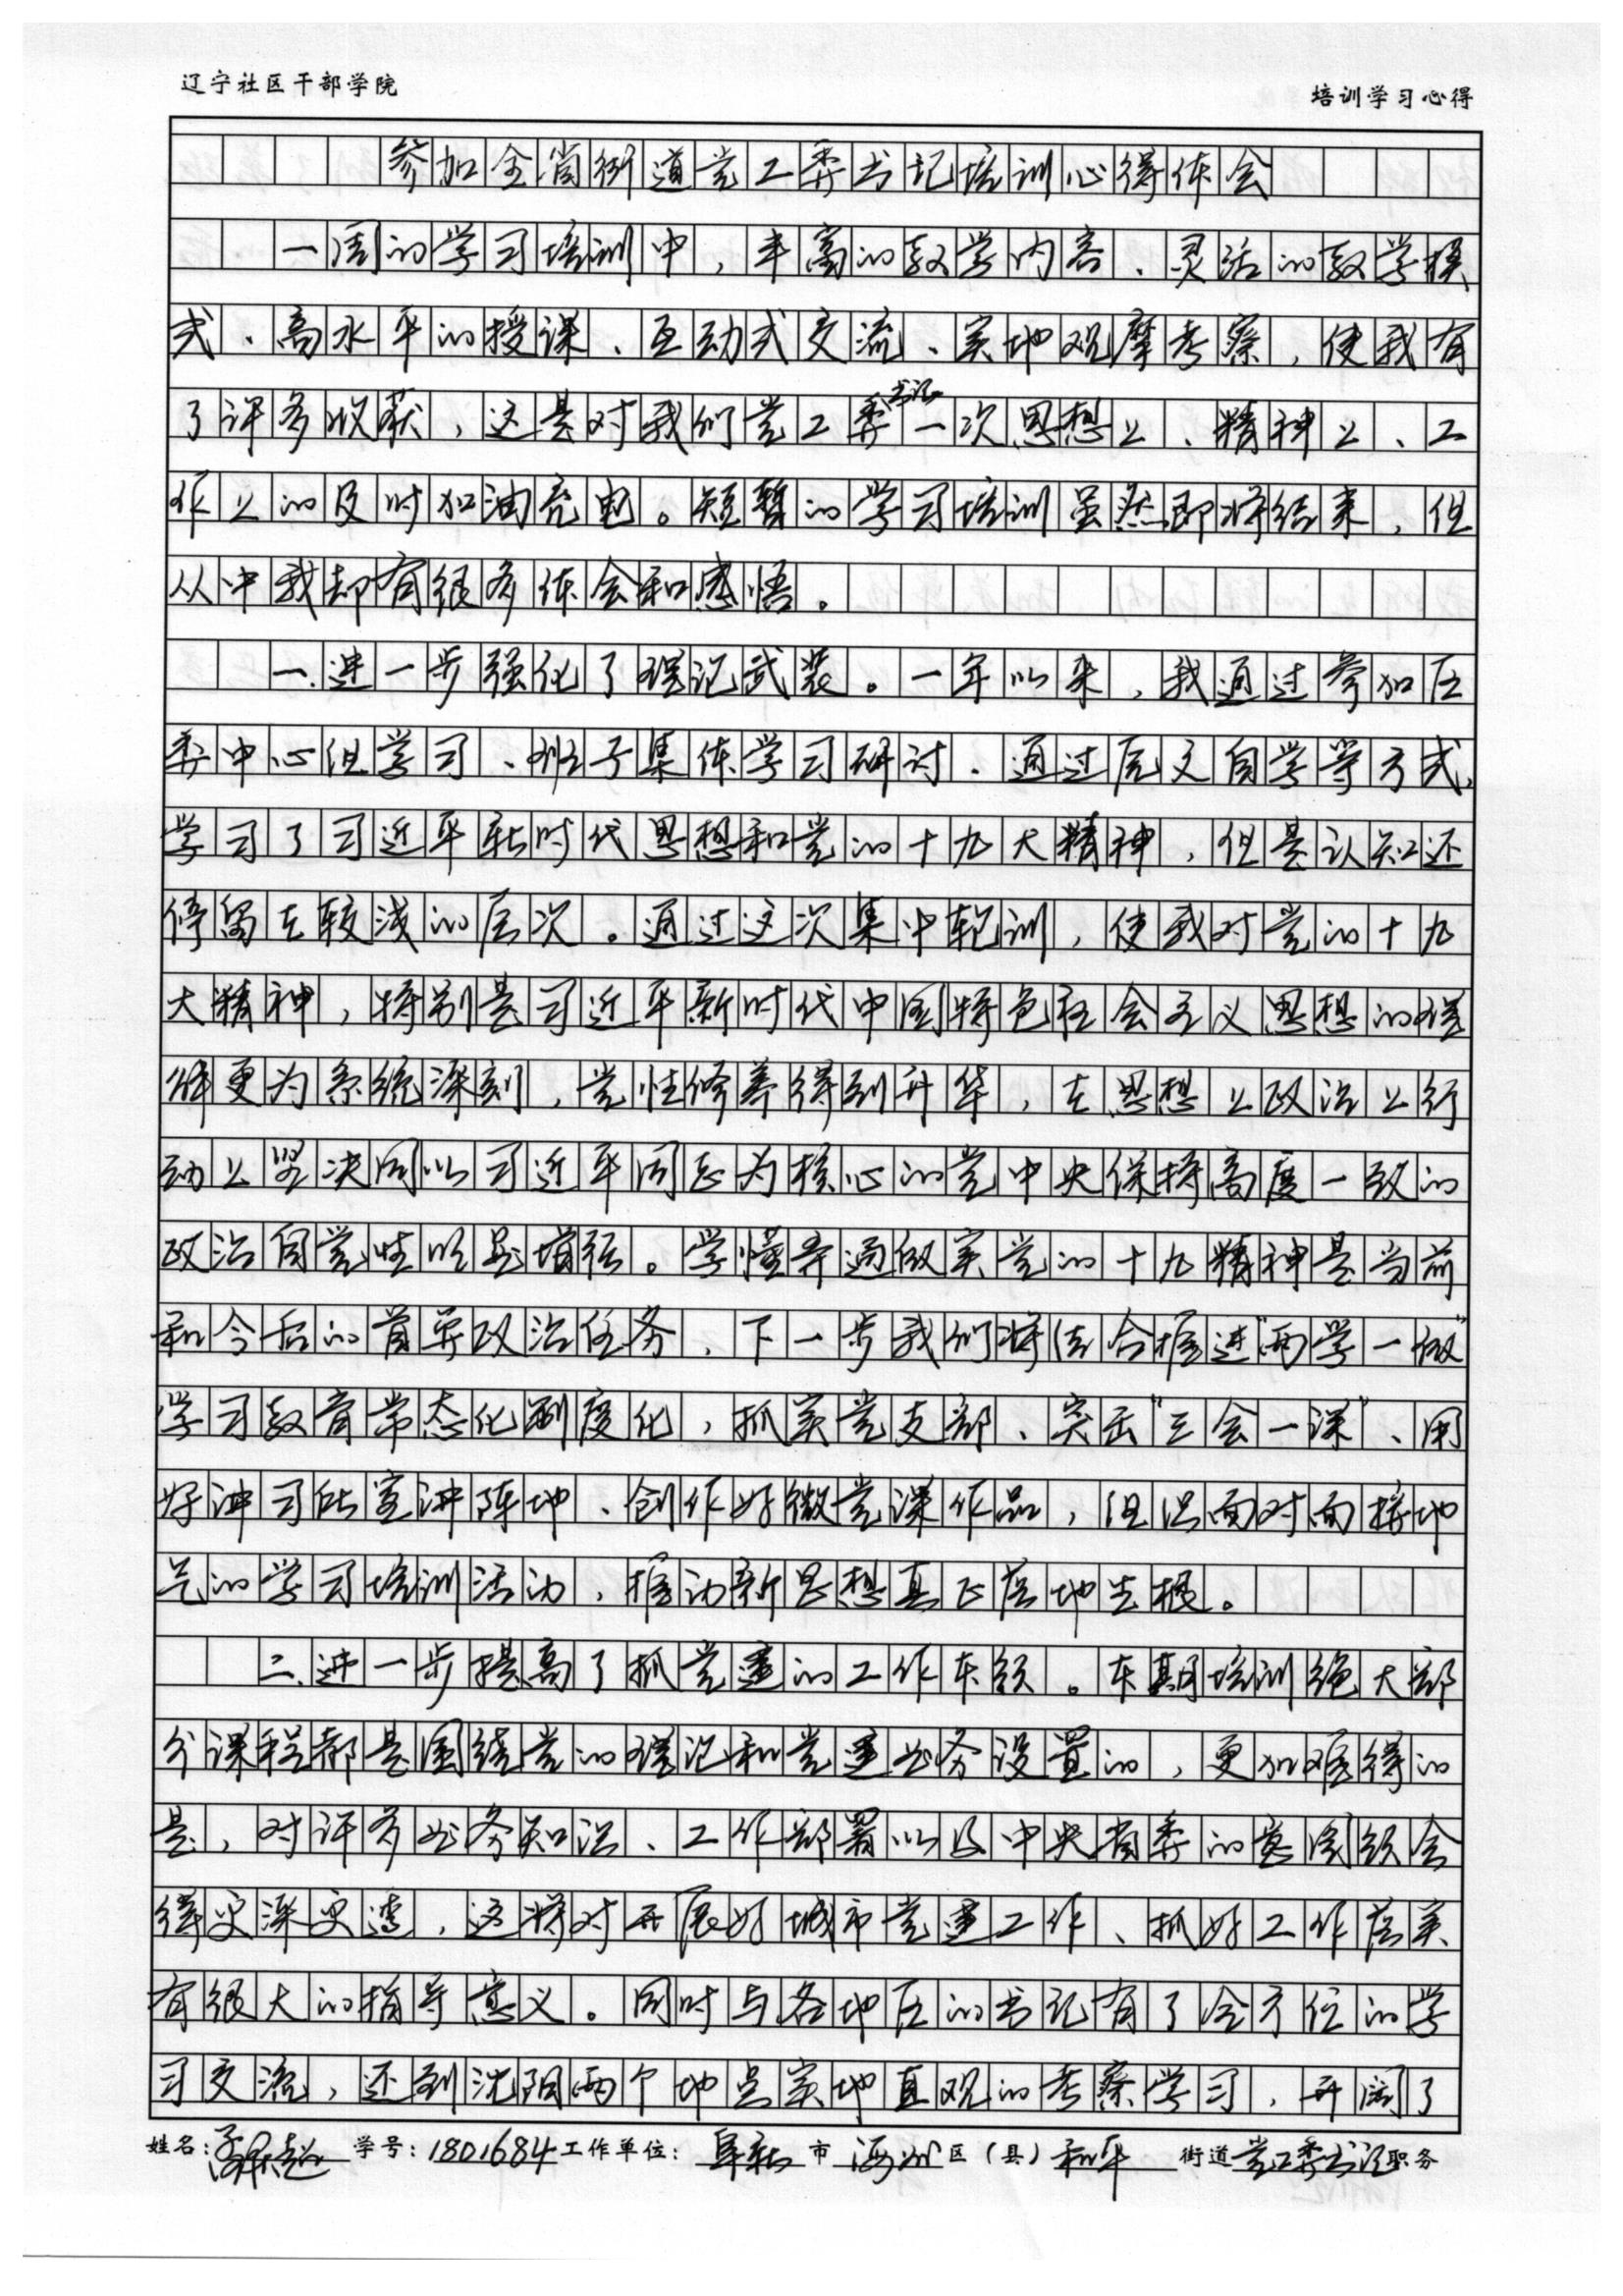 辽宁社区干部学院 培训学习心得
参加全省街道党工委书记培训心得体会
一周的学习培训中，丰富的教学内容、灵活的教学模
式、高水平的授课、互动式交流、实地观摩考察，使我有
了许多收获，这是对我们党工委书记一次思想上、精神上、工
作上的及时加油充电。短暂的学习培训虽然即将结束，但
从中我却有很多体会和感悟。
一.进一步强化了理论武装。一年以来，我通过参加区
委中心组学习、班子集体学习研讨、通过原文自学等方式，
学习了习近平新时代思想和党的十九大精神，但是认知还
停留在较浅的层次。通过这次集中轮训，使我对党的十九
大精神，特别是习近平新时代中国特色社会主义思想的理
解更为系统深刻，党性修养得到升华，在思想上政治上行
动上坚决同以习近平同志为核心的党中央保持高度一致的
政治自觉性明显增强。学懂弄通做实党的十九精神是当前
和今后的首要政治任务，下一步我们将结合推进“两学一做”
学习教育常态化制度化，抓实党支部、突击“三会一课”、用
好讲习所宣讲阵地、创作好微党课作品，组织面对面接地
气的学习培训活动，推动新思想真正落地生根。
二.进一步提高了抓党建的工作本领。本期培训绝大部
分课程都是围绕党的理论和党建业务设置的，更加难得的
是，对许多业务知识、工作部署以及中央省委的意图领会
得更深更透，这将对开展好城市党建工作、抓好工作落实
有很大的指导意义。同时与各地区的书记有了全方位的学
习交流，还到沈阳两个地点实地直观的考察学习，开阔了
姓名： 学号：1801684 工作单位：阜新市海州区（县）和平街道党工委书记职务